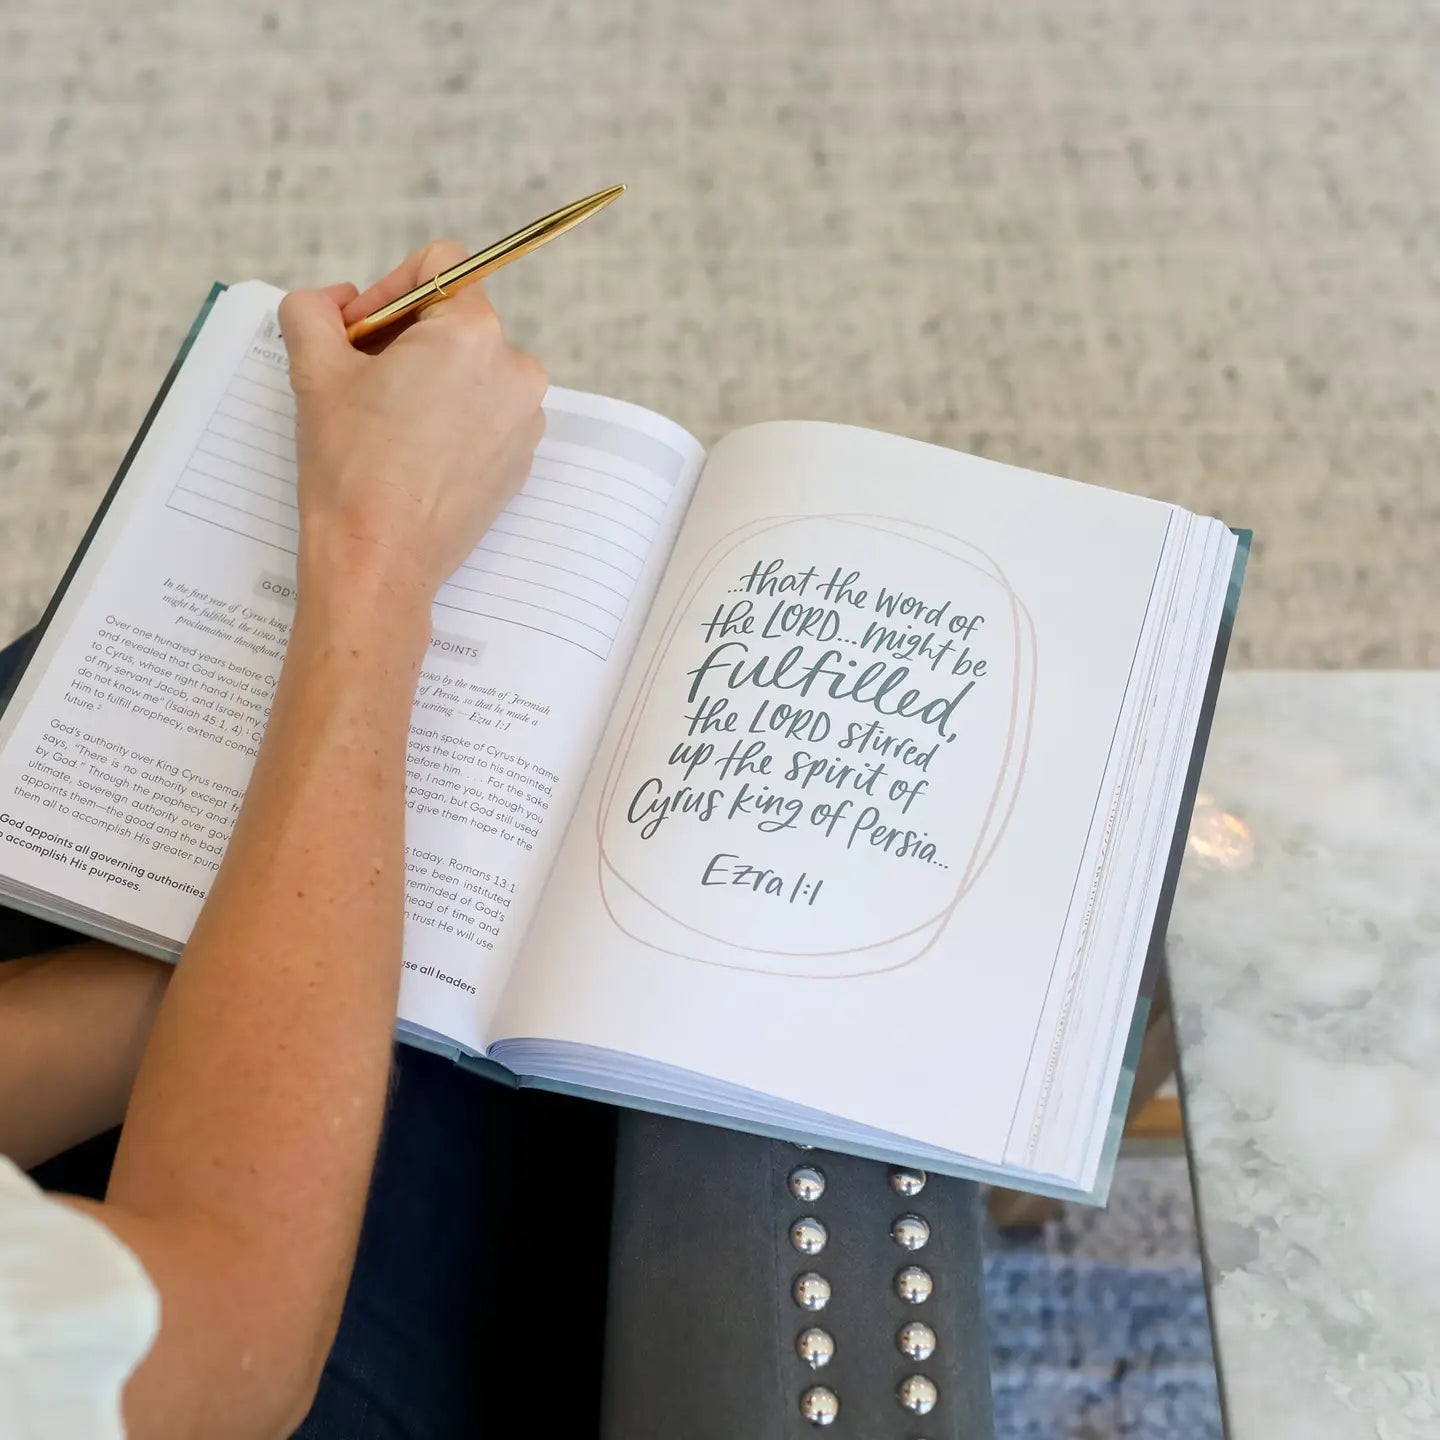 NOTES
GOD'S
POINTS
In the first year of Cyrus king
might be fulfilled, the LORD
proclamation throughout
LORD by the mouth of Jeremiah
of Persia, so that he made a
writing — Ezra 1:1
Over one hundred years before
and revealed that God would use
to Cyrus, whose right hand I have
of my servant Jacob, and Israel my
do not know me" (Isaiah 45:1, 4).²
Him to fulfill prophecy, extend
future.²
Isaiah spoke of Cyrus by name
says the Lord to his anointed,
before him. . . . For the sake
me, I name you, though you
pagan, but God still used
give them hope for the
God's authority over King Cyrus
says, "There is no authority except
by God." Through the prophecy and
ultimate, sovereign authority over
appoints them—the good and the bad
them all to accomplish His greater
today. Romans 13:1
have been instituted
reminded of God's
ahead of time and
trust He will use
God appoints all governing authorities.
accomplish His purposes.
use all leaders
...that the word of
the LORD...might be
fulfilled,
the LORD stirred
up the spirit of
Cyrus king of Persia...
Ezra 1:1